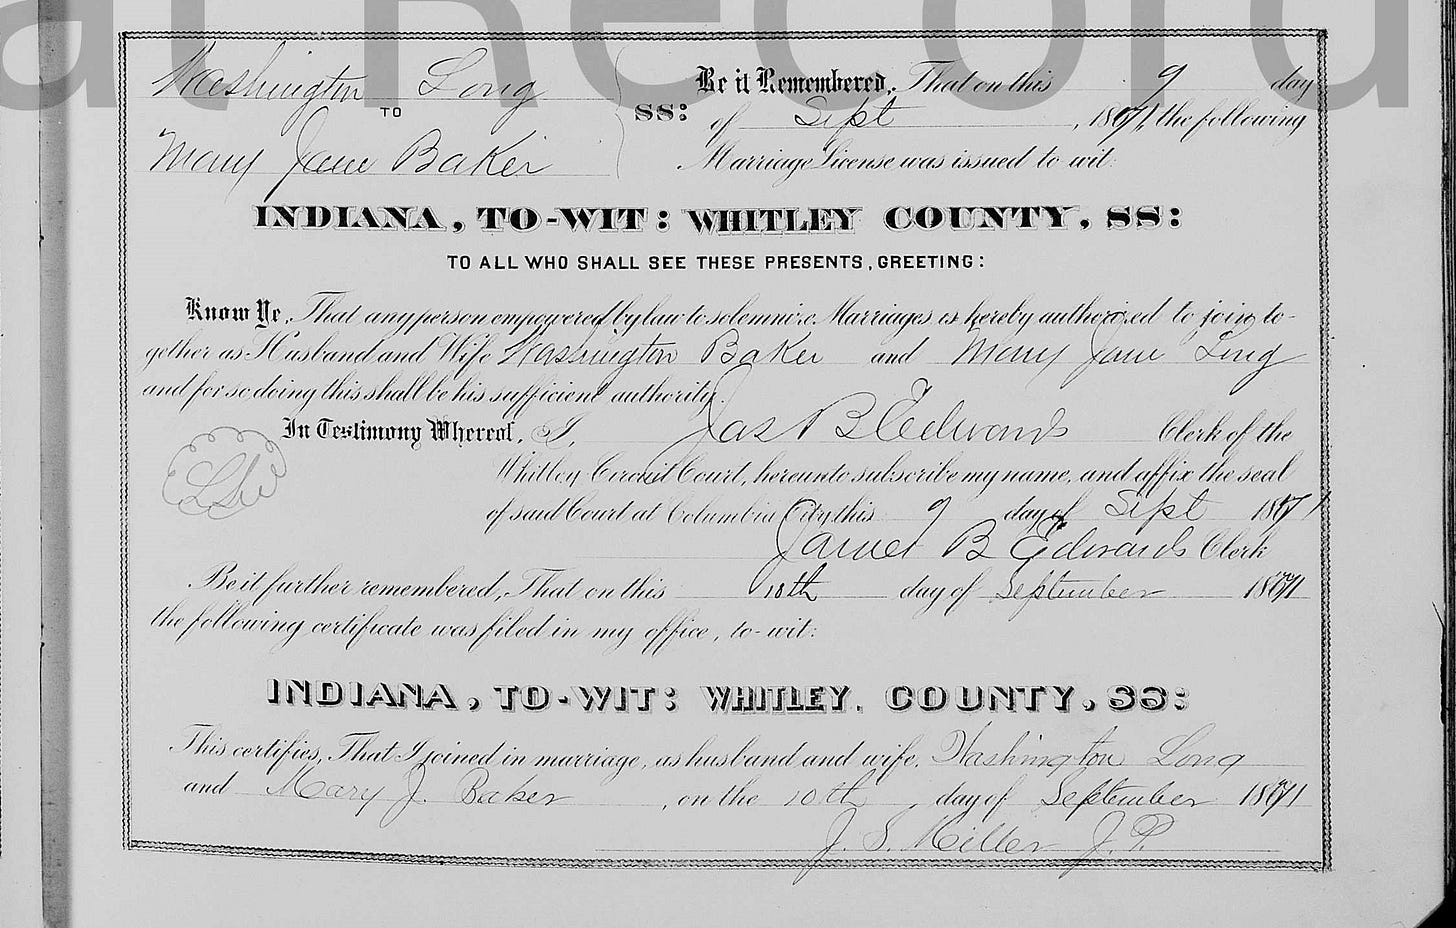 at Record
Washington Long
TO
Mary Jane Baker
SS:
Be it Remembered, That on this 9 day
of Sept, 1871, the following
Marriage License was issued to wit:
INDIANA, TO-WIT: WHITLEY COUNTY, SS:
TO ALL WHO SHALL SEE THESE PRESENTS, GREETING:
Know Ye, That any person empowered by law to solemnize Marriages is hereby authorized to join to-
gether as Husband and Wife Washington Baker and Mary Jane Long
and for so doing this shall be his sufficient authority.
In Testimony Whereof, I, Jas B Edwards Clerk of the
Whitley Circuit Court, hereunto subscribe my name, and affix the seal
of said Court at Columbia City this 9 day of Sept 1871
James B Edwards Clerk
Be it further remembered, That on this 10th day of September 1871
the following certificate was filed in my office, to-wit:
INDIANA, TO-WIT: WHITLEY COUNTY, SS:
This certifies, That I joined in marriage, as husband and wife, Washington Long
and Mary J. Baker, on the 10th day of September 1871
J. S. Miller J. P.